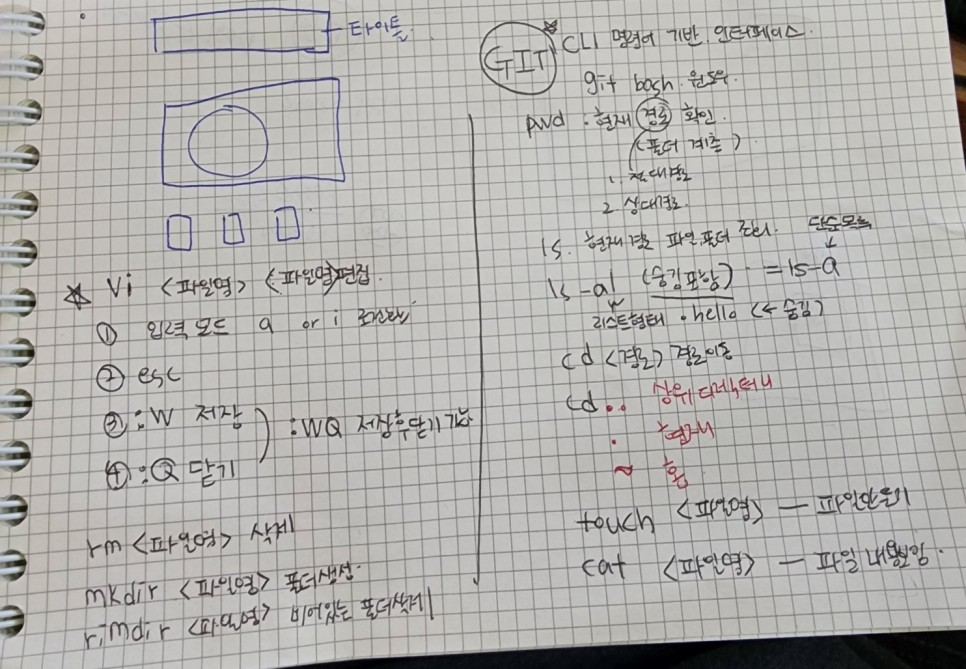 타이틀
★ Vi <파일명> (파일명)편집
① 입력 모드 a or i
② esc
③ :W 저장
④ :Q 닫기
:WQ 저장후닫기 가능
rm <파일명> 삭제
mkdir <파일명> 폴더생성.
rimdir <파일명> 비어있는 폴더삭제
GIT
CLI 명령어 기반 인터페이스.
git bash 윈도우.
pwd : 현재 경로 확인.
(폴더 계층)
1. 절대경로
2. 상대경로.
ls. 현재 경로 파일,폴더 조회. 단순목록
ls -al (숨김포함) = ls-a
리스트형태 .hello (← 숨김)
cd <경로> 경로이동
cd .. 상위 디렉터리
. 현재
~ 홈
touch <파일명> — 파일만들기
cat <파일명> — 파일 내용보임.